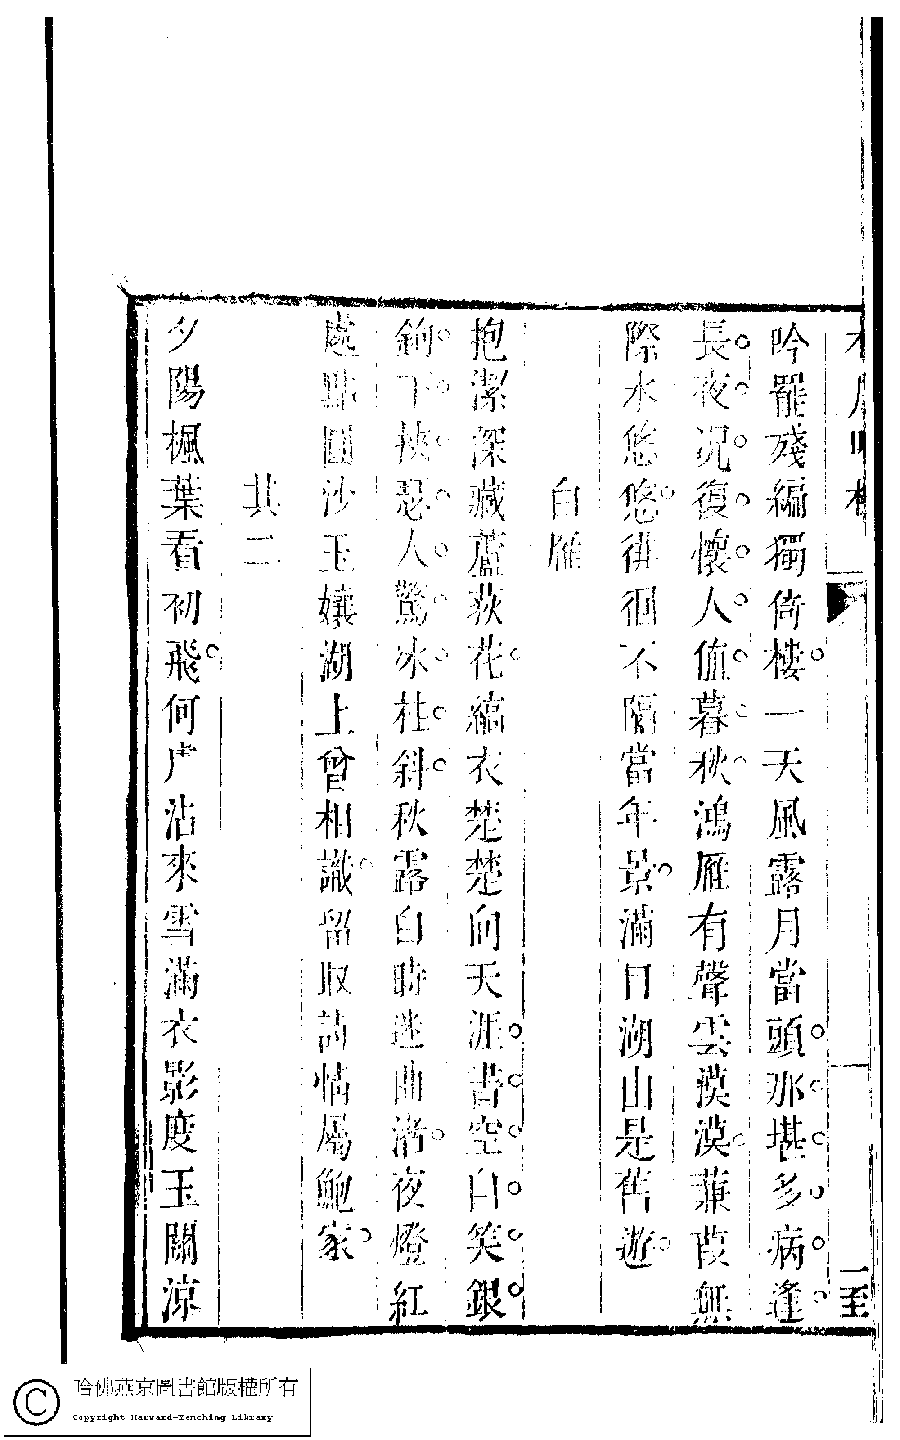 吟罷殘編獨倚樓一天風露月當頭那堪多病逢
長夜況復懷人值暮秋鴻雁有聲雲漠漠蒹葭無
際水悠悠徘徊不隔當年景滿目湖山是舊遊
白雁
抱潔深藏蘆荻花縞衣楚楚向天涯書空白笑銀
鉤下挾忍人驚冰柱斜秋露白時迷曲渚夜燈紅
處點圓沙玉孃湖上曾相識留取詩情屬鮑家
其二
夕陽楓葉看初飛何處沾來雪滿衣影度玉關涼
哈佛燕京圖書館版權所有
Copyright Harvard-Yenching Library